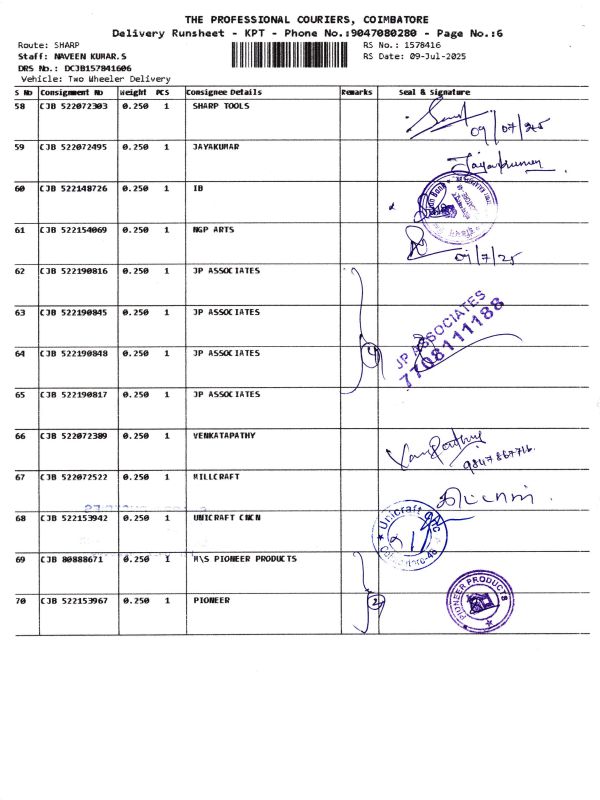 THE PROFESSIONAL COURIERS, COIMBATORE
Delivery Runsheet - KPT - Phone No.:9047080280 - Page No.:6
Route: SHARP RS No.: 1578416
Staff: NAVEEN KUMAR.S RS Date: 09-Jul-2025
DRS No.: DCJB157841606
Vehicle: Two Wheeler Delivery
S No Consignment No Weight PCS Consignee Details Remarks Seal & Signature
58 CJB 522072303 0.250 1 SHARP TOOLS
09/07/25
59 CJB 522072495 0.250 1 JAYAKUMAR
Jayakumar
60 CJB 522148726 0.250 1 IB
61 CJB 522154069 0.250 1 NGP ARTS
09/7/25
62 CJB 522190816 0.250 1 JP ASSOCIATES
63 CJB 522190845 0.250 1 JP ASSOCIATES
JP ASSOCIATES
7708111188
64 CJB 522190848 0.250 1 JP ASSOCIATES
4
65 CJB 522190817 0.250 1 JP ASSOCIATES
66 CJB 522072389 0.250 1 VENKATAPATHY
9847867716
67 CJB 522072522 0.250 1 MILLCRAFT
68 CJB 522153942 0.250 1 UNICRAFT CNCN
Unicraft CNC
69 CJB 80888671 0.250 1 M\S PIONEER PRODUCTS
70 CJB 522153967 0.250 1 PIONEER
2
PIONEER PRODUCTS